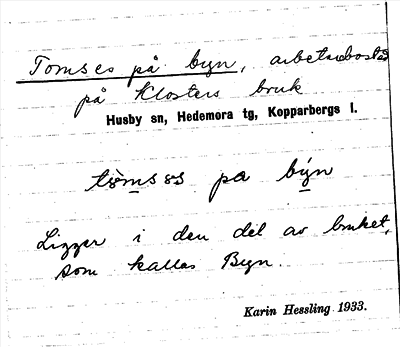 Tomses på byn, arbetarbostad
på Klosters bruk
Husby sn, Hedemora tg, Kopparbergs l.
på býn
Ligger i den del av bruket,
som kallas Byn.
Karin Hessling 1933.